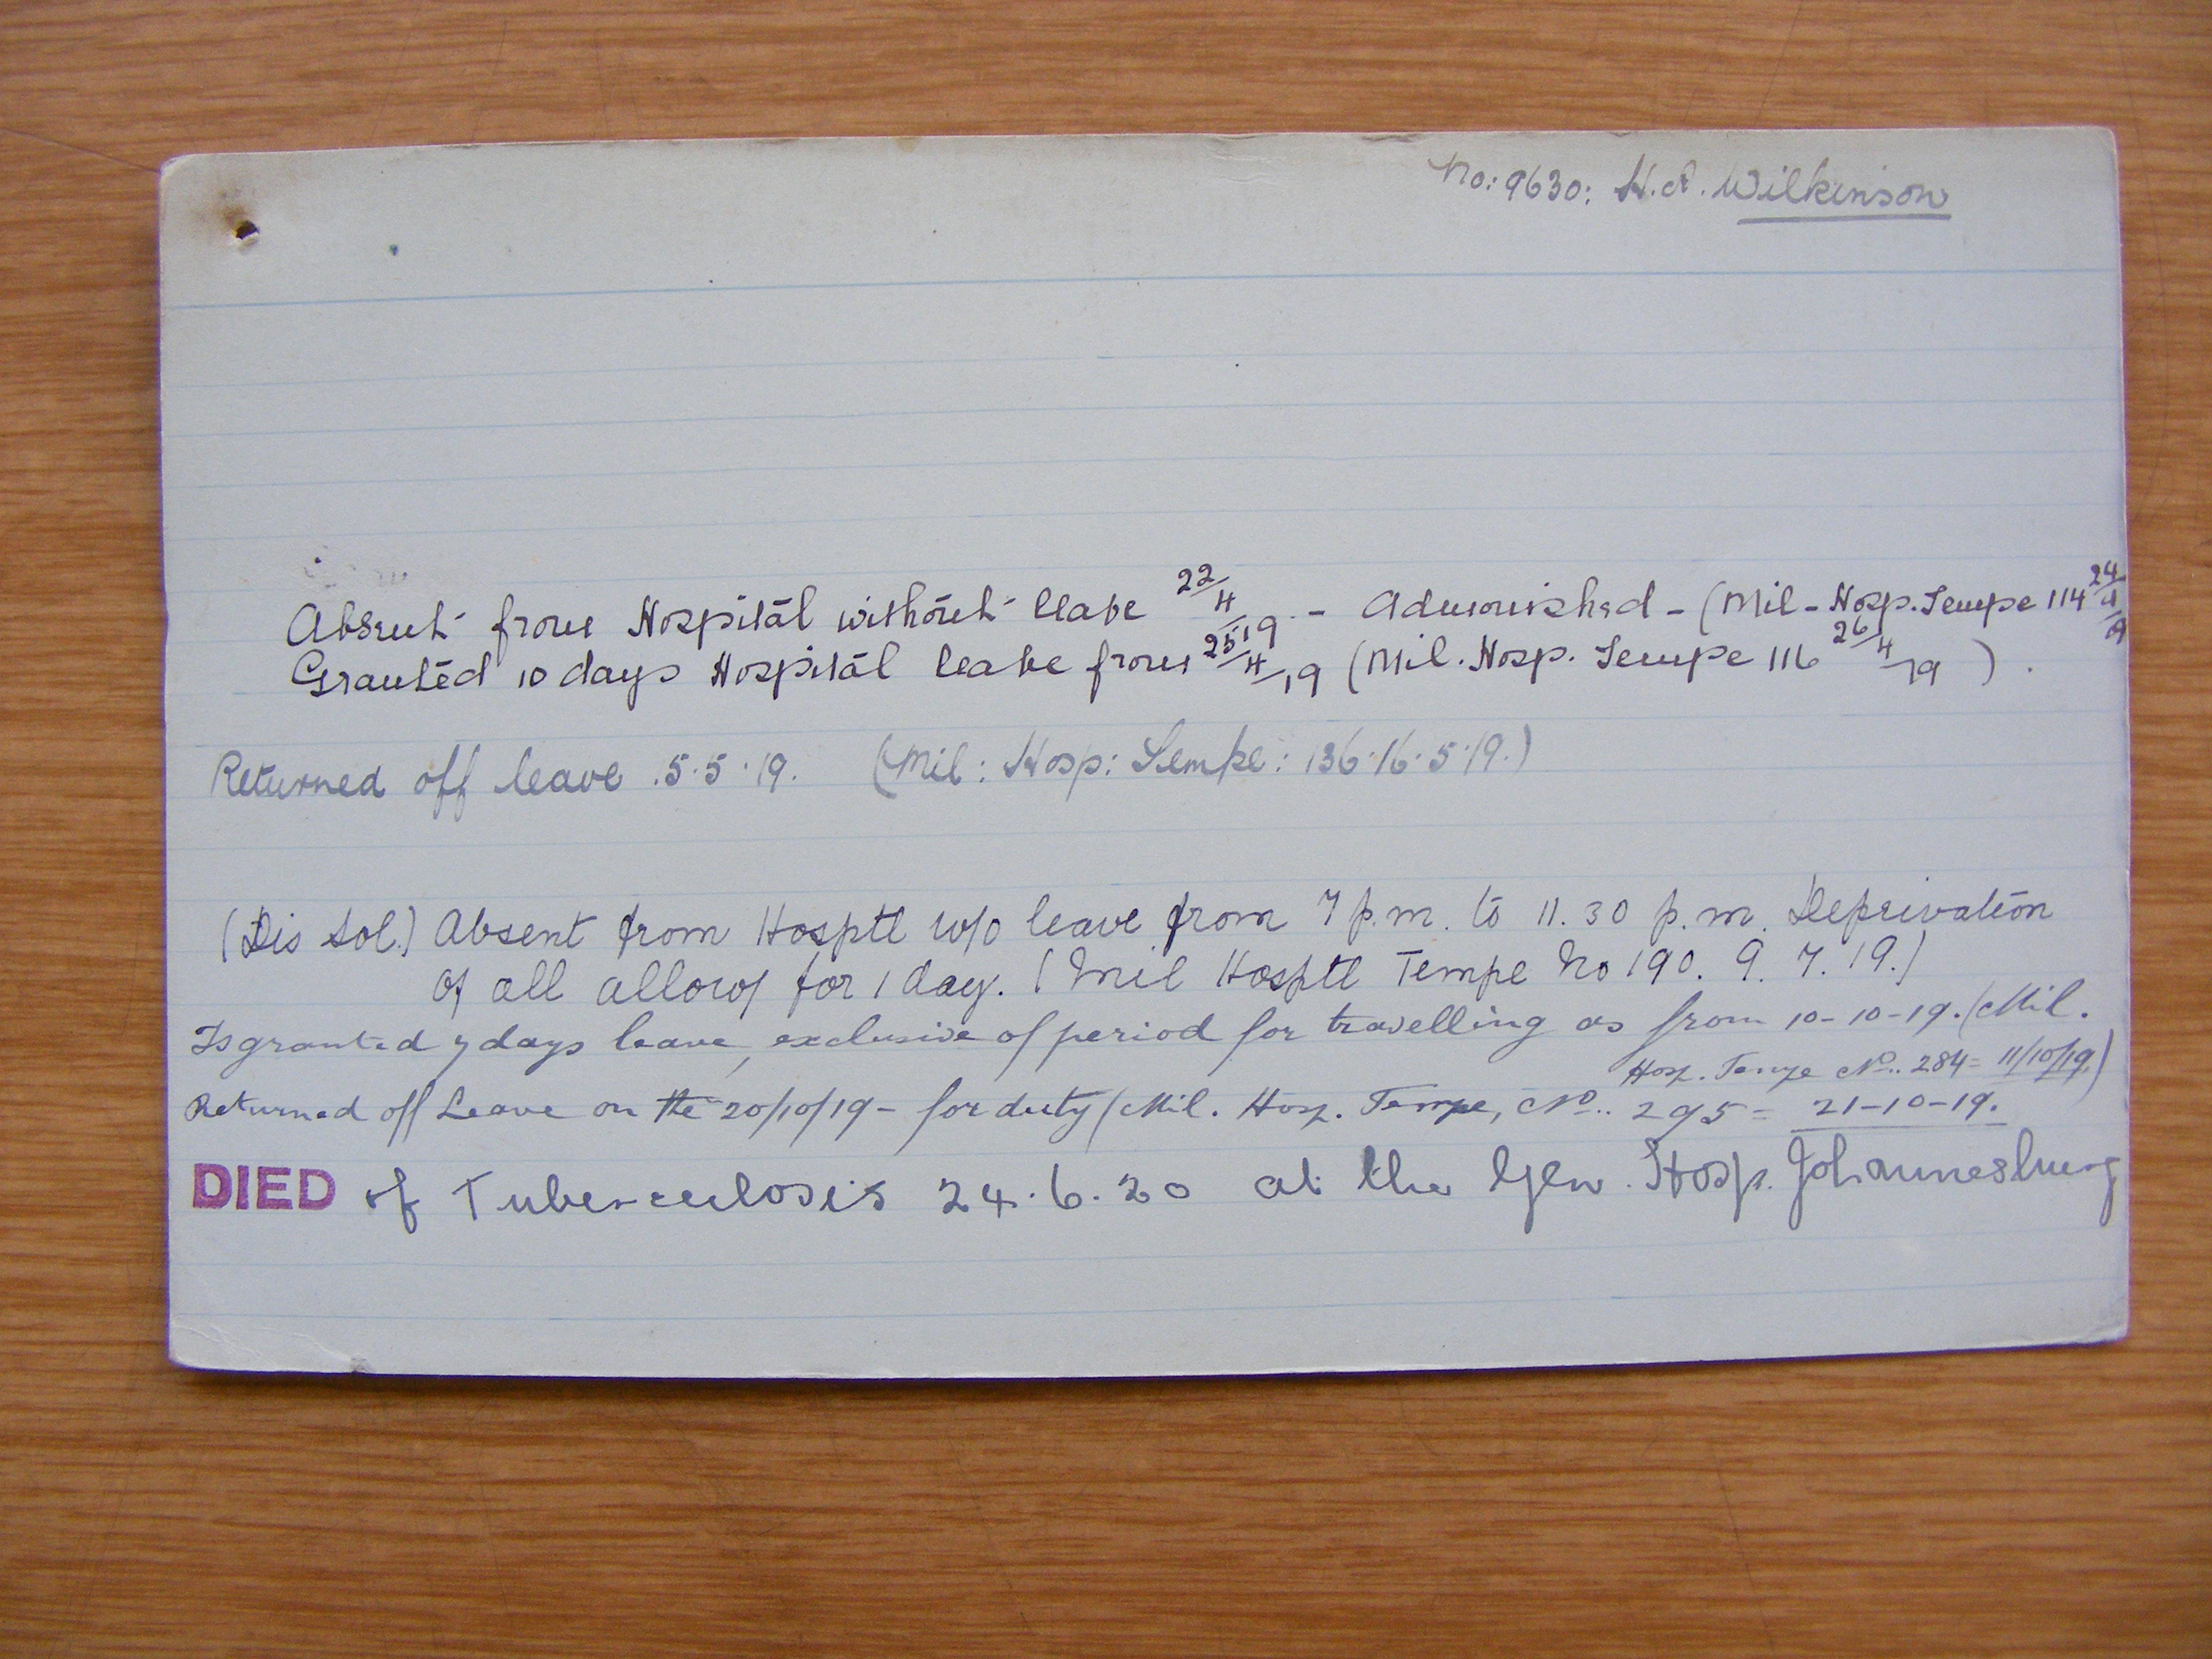 No: 9630: H.A. Wilkinson
Absent from Hospital without leave 22/4/19 - Admonished - (Mil - Hosp. Tempe 114 24/4/19
Granted 10 days Hospital leave from 25/4/19 (Mil. Hosp. Tempe 116 26/4/19 ).
Returned off leave .5.5.19. (Mil: Hosp: Tempe: 136.16.5.19.)
(Dis Sol.) Absent from Hosptl w/o leave from 7 p.m. to 11.30 p.m. Deprivation
of all allows for 1 day. (Mil Hosptl Tempe No 190. 9. 7. 19.)
Is granted 7 days leave, exclusive of period for travelling as from 10-10-19. (Mil.
Hosp. Tempe No.. 284 = 11/10/19)
Returned off Leave on the 20/10/19 - for duty (Mil. Hosp. Tempe, No.. 295 = 21-10-19.
DIED of Tuberculosis 24.6.20 at the Gen. Hosp. Johannesburg